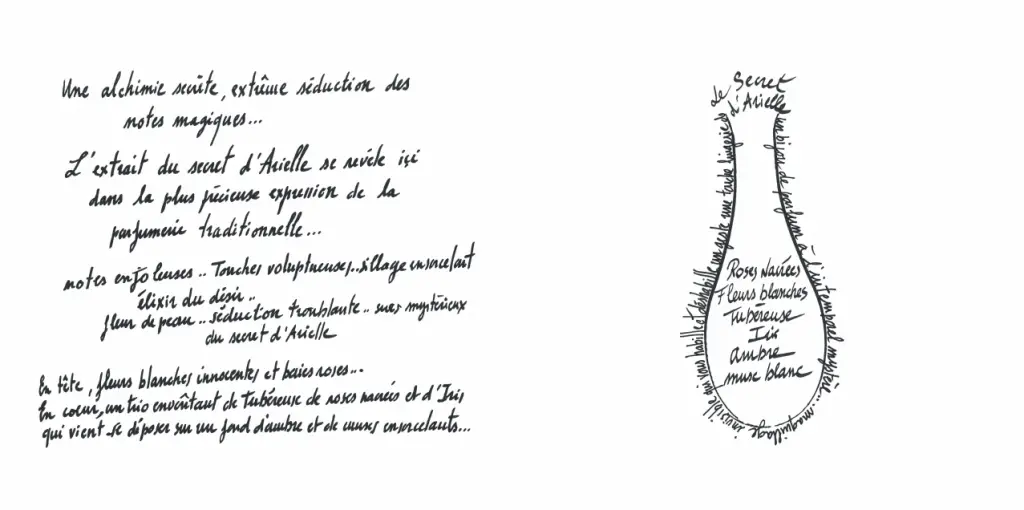 Une alchimie secrète, extrême séduction des
notes magiques...
L'extrait du secret d'Arielle se révèle içi
dans la plus précieuse expression de la
parfumerie traditionnelle...
notes enjôleuses .. Touches voluptueuses.. sillage ensorcelant
élixir du désir ..
fleur de peau .. séduction troublante .. mystérieux
du secret d'Arielle
En tête, fleurs blanches innocentes et baies roses...
En coeur, un trio envoûtant de Tubéreuse de roses nacrées et d'Iris
qui vient se déposer sur un fond d'ambre et de muscs ensorcelants...
Le Secret
d'Arielle
un bijou de parfum à l'intemporel mystère... maquillage
invisible qui vous habille et déshabille un geste une lingerie
Roses Nacrées
Fleurs blanches
Tubéreuse
Iris
ambre
musc blanc